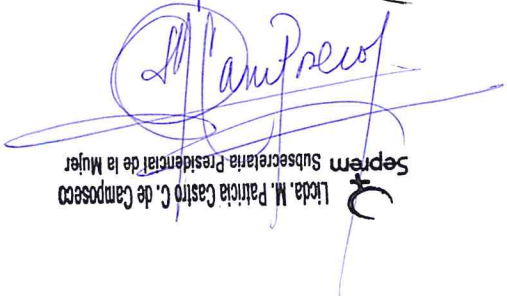 Licda. M. Patricia Castro C. de Camposeco
Subsecretaria Presidencial de la Mujer
Seprem